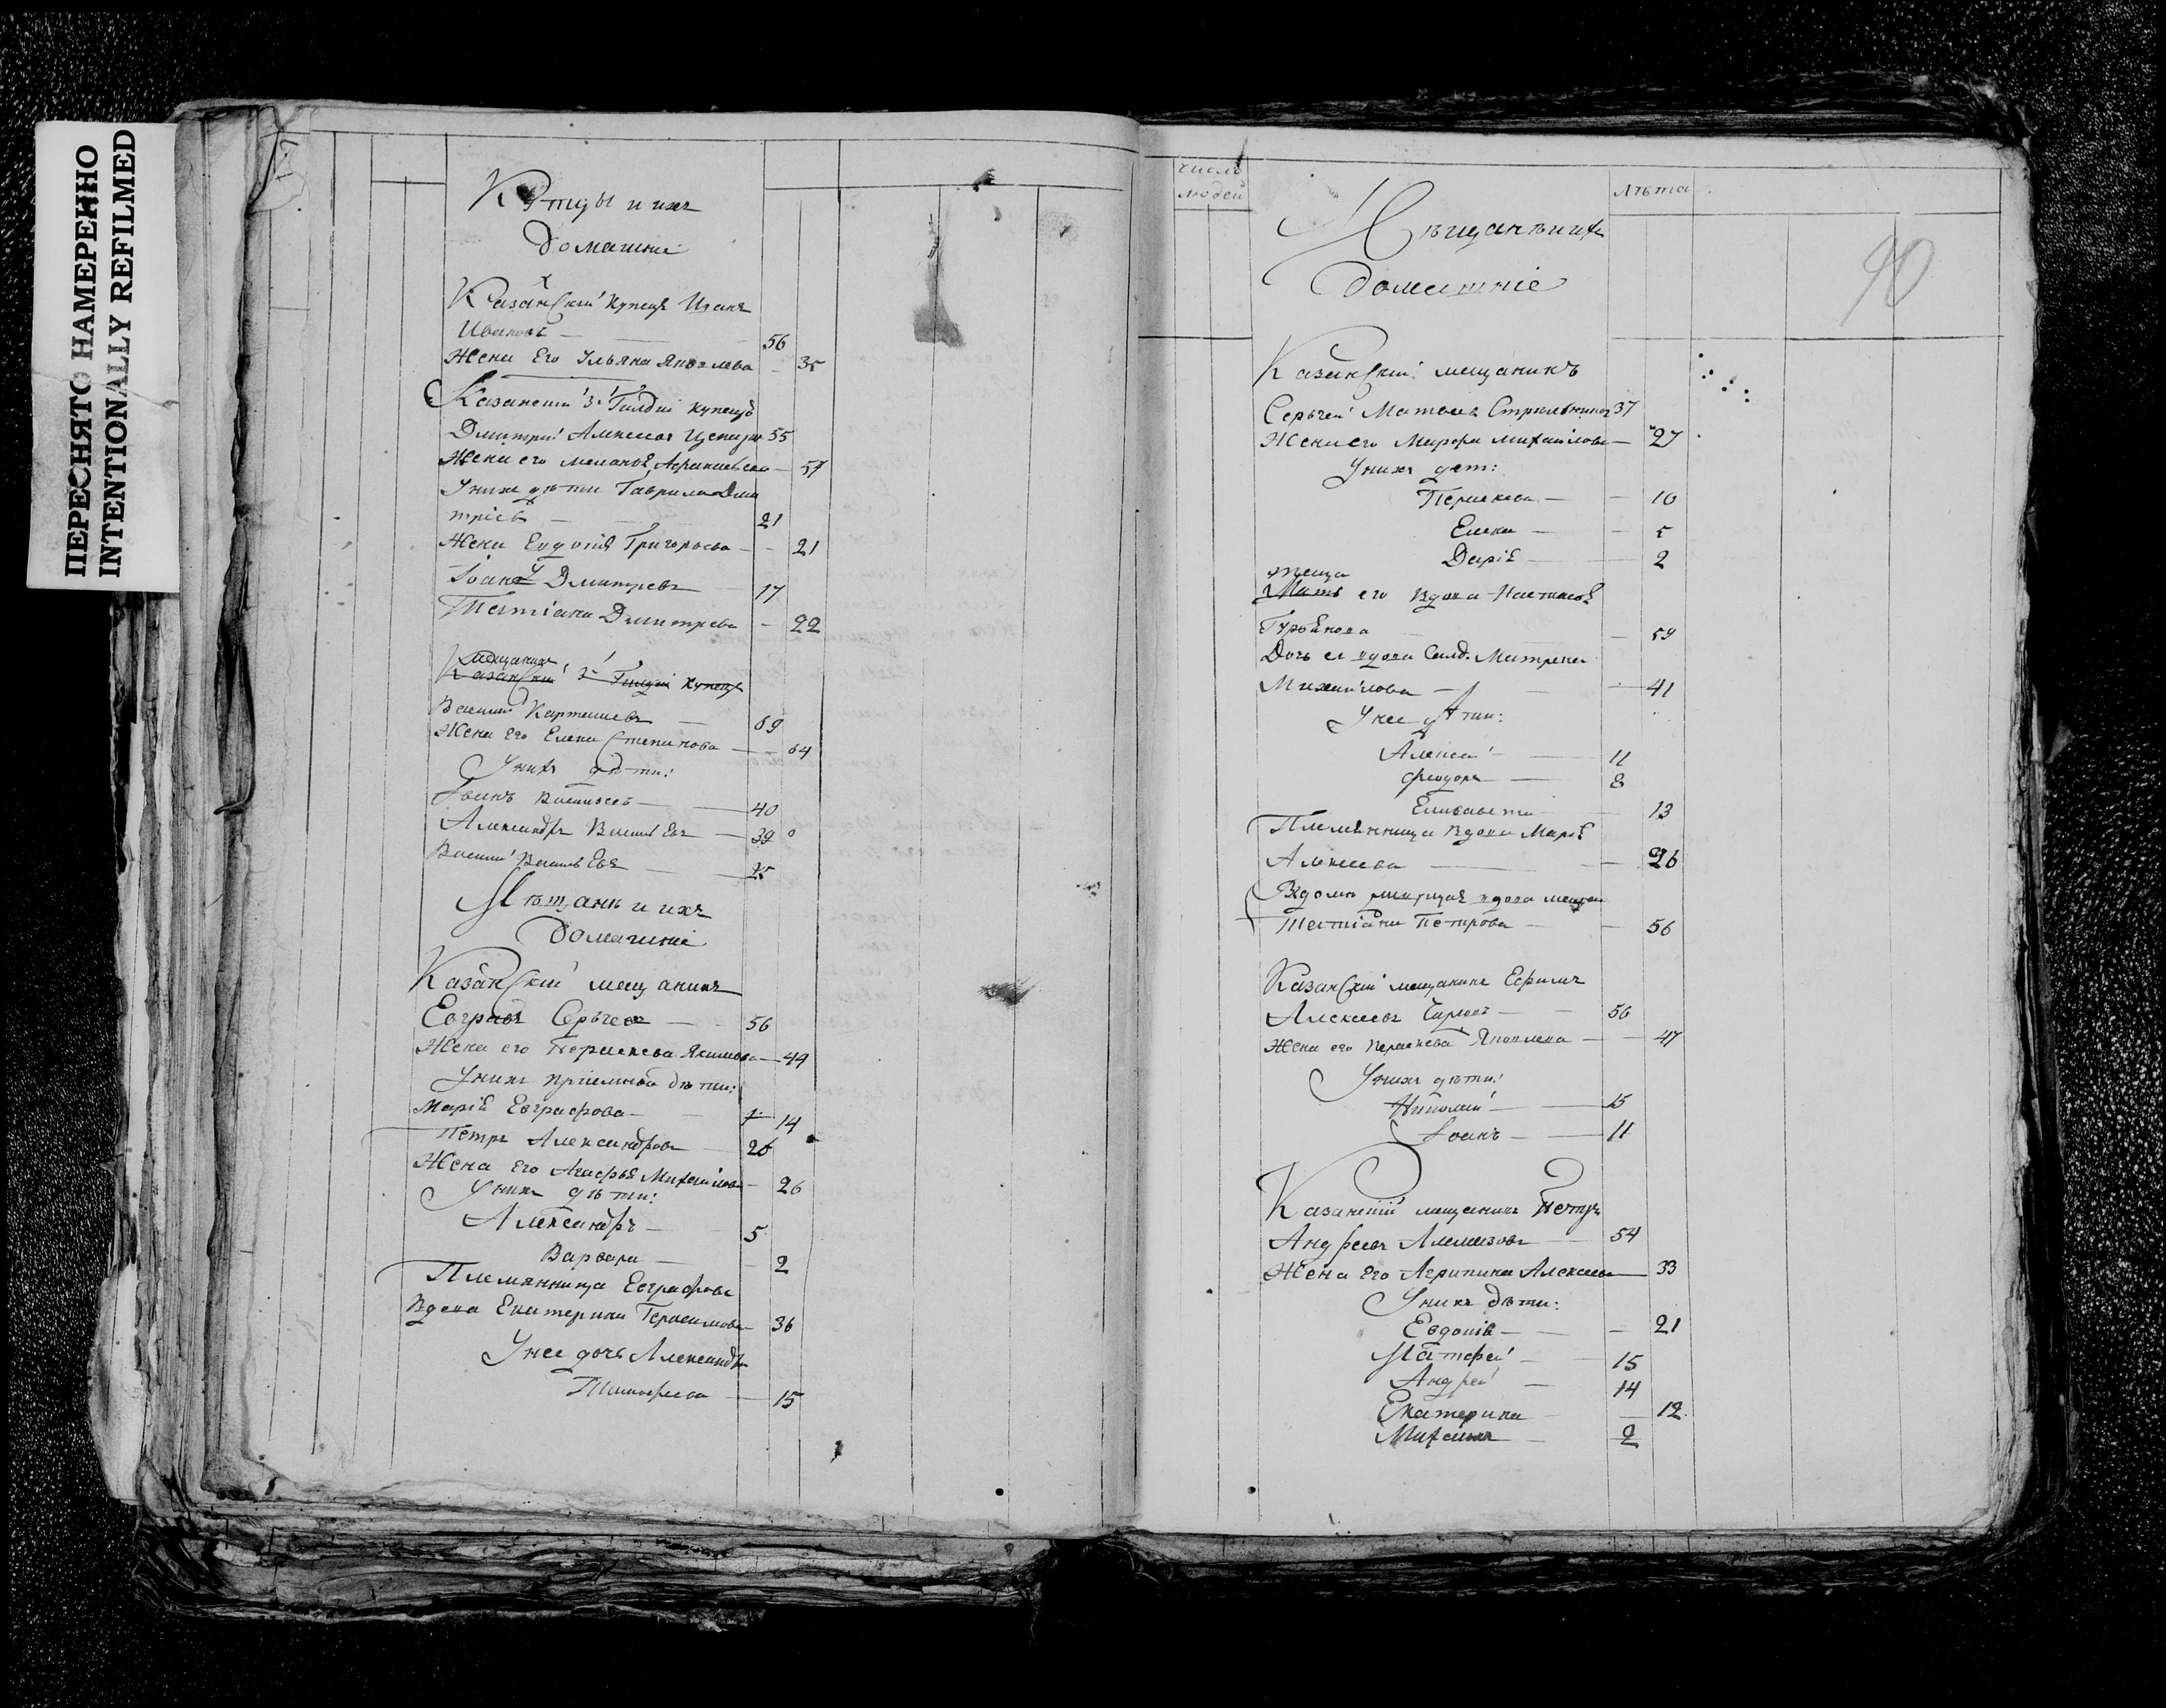 ПЕРЕСНЯТО НАМЕРЕННО
INTENTIONALLY REFILMED
Купцы и ихъ
домашніе
Казанскій купецъ Иванъ
Ивановъ — 56
Жена Его Ульяна Яковлева — 35
Казанскій 3й Гилдіи купецъ
Дмитрій Алексеевъ 55
Жена его Агрипиева — 57
У нихъ дѣти Гаврила Дми
тріевъ — 21
Жена Евдокія Григорьева — 21
Іоанъ Дмитревъ 17
Татіана Дмитрева — 22
мещанинъ
Казанскій 3й Гилдіи купецъ
Василий Карташевъ — 69
Жена Его Елена Степанова — 64
У нихъ дѣти:
Іоанъ Васильевъ — 40
Александръ Васильевъ — 39
Василий Васильевъ — 25
Мѣщанѣ и ихъ
домашніе
Казанскій мещанинъ
Евграфъ Сергѣевъ — 56
Жена его Пераскева Якимова — 44
У нихъ приемной дѣти:
Марія Евграфова — 14
Петръ Александровъ 26
Жена Его Агафья Михаилова — 26
У нихъ дѣти:
Александръ — 5
Варвара — 2
Племянница Евграфова
Вдова Екатерина Герасимова — 36
У нее дочь Александра
Тимофеева — 15
число
людей
лѣта
90
Мѣщанѣ и ихъ
домашніе
Казанскій мещанинъ
Сергѣй Матвеевъ Стрельниковъ 37
Жена его Марфа Михаилова — 27
У нихъ дет:
Пераскева — 10
Елена — 5
Дарія — 2
теща
Мать его вдова Настасья
Гурьянова — 59
Дочь ее вдова Салд. Матрена
Михайлова — 41
У нее дѣти:
Алексей — 11
Феодоръ — 8
Елисавета 13
Племянница вдова Марья
Алексеева — 26
В домѣ вдова мещан
Татіана Петрова — 56
Казанскій мещанинъ Ефимъ
Алексеевъ — 56
Жена его Пераскева Яковлева — 47
У нихъ дѣти:
Николай — 15
Іоанъ — 11
Казанскій мещанинъ Петръ
Андреевъ — 54
Жена Его Агрипина Алексеева — 33
У нихъ дѣти:
Евдокія — 21
Матфей — 15
Андрей — 14
Екатерина — 12
Михаилъ — 2